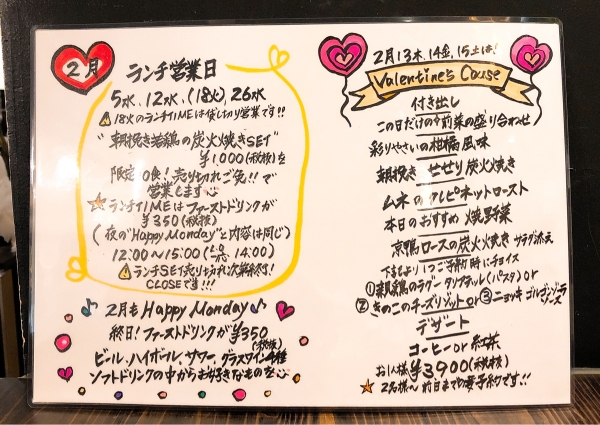 2月
ランチ営業日
5水、12水、(18火)、26水
⚠18火のランチTIMEは貸し切り営業です!!
"朝挽き若鶏の炭火焼きSET"
¥1,000(税抜)を
限定10食!売り切れご免!!で
営業します
☆ランチTIMEはファーストドリンクが
¥350(税抜)
(夜の"Happy Monday"と内容は同じ)
12:00〜15:00(L.O. 14:00)
⚠ランチSET売り切れ次第終了!
CLOSEです!!!
♪2月もHappy Monday♪
終日!ファーストドリンクが¥350
(税抜)
ビール、ハイボール、サワー、グラスワイン4種
ソフトドリンクの中からお好きなものを
2月13木、14金、15土は!
Valentine's Cause
付き出し
この日だけの前菜の盛り合わせ
彩りやさいの柑橘風味
朝挽き せせり炭火焼き
ムネのクレピネットロースト
本日のおすすめ 焼野菜
京鴨ロースの炭火焼き サラダ添え
下記より1つご予約時にチョイス
①親鶏のラグー タリアテッレ(パスタ)or
②きのこのチーズリゾットor③ニョッキ ゴルゴンゾーラソース
デザート
コーヒーor紅茶
お1人様¥3900(税抜)
☆2名様〜 前日までの要予約です!!